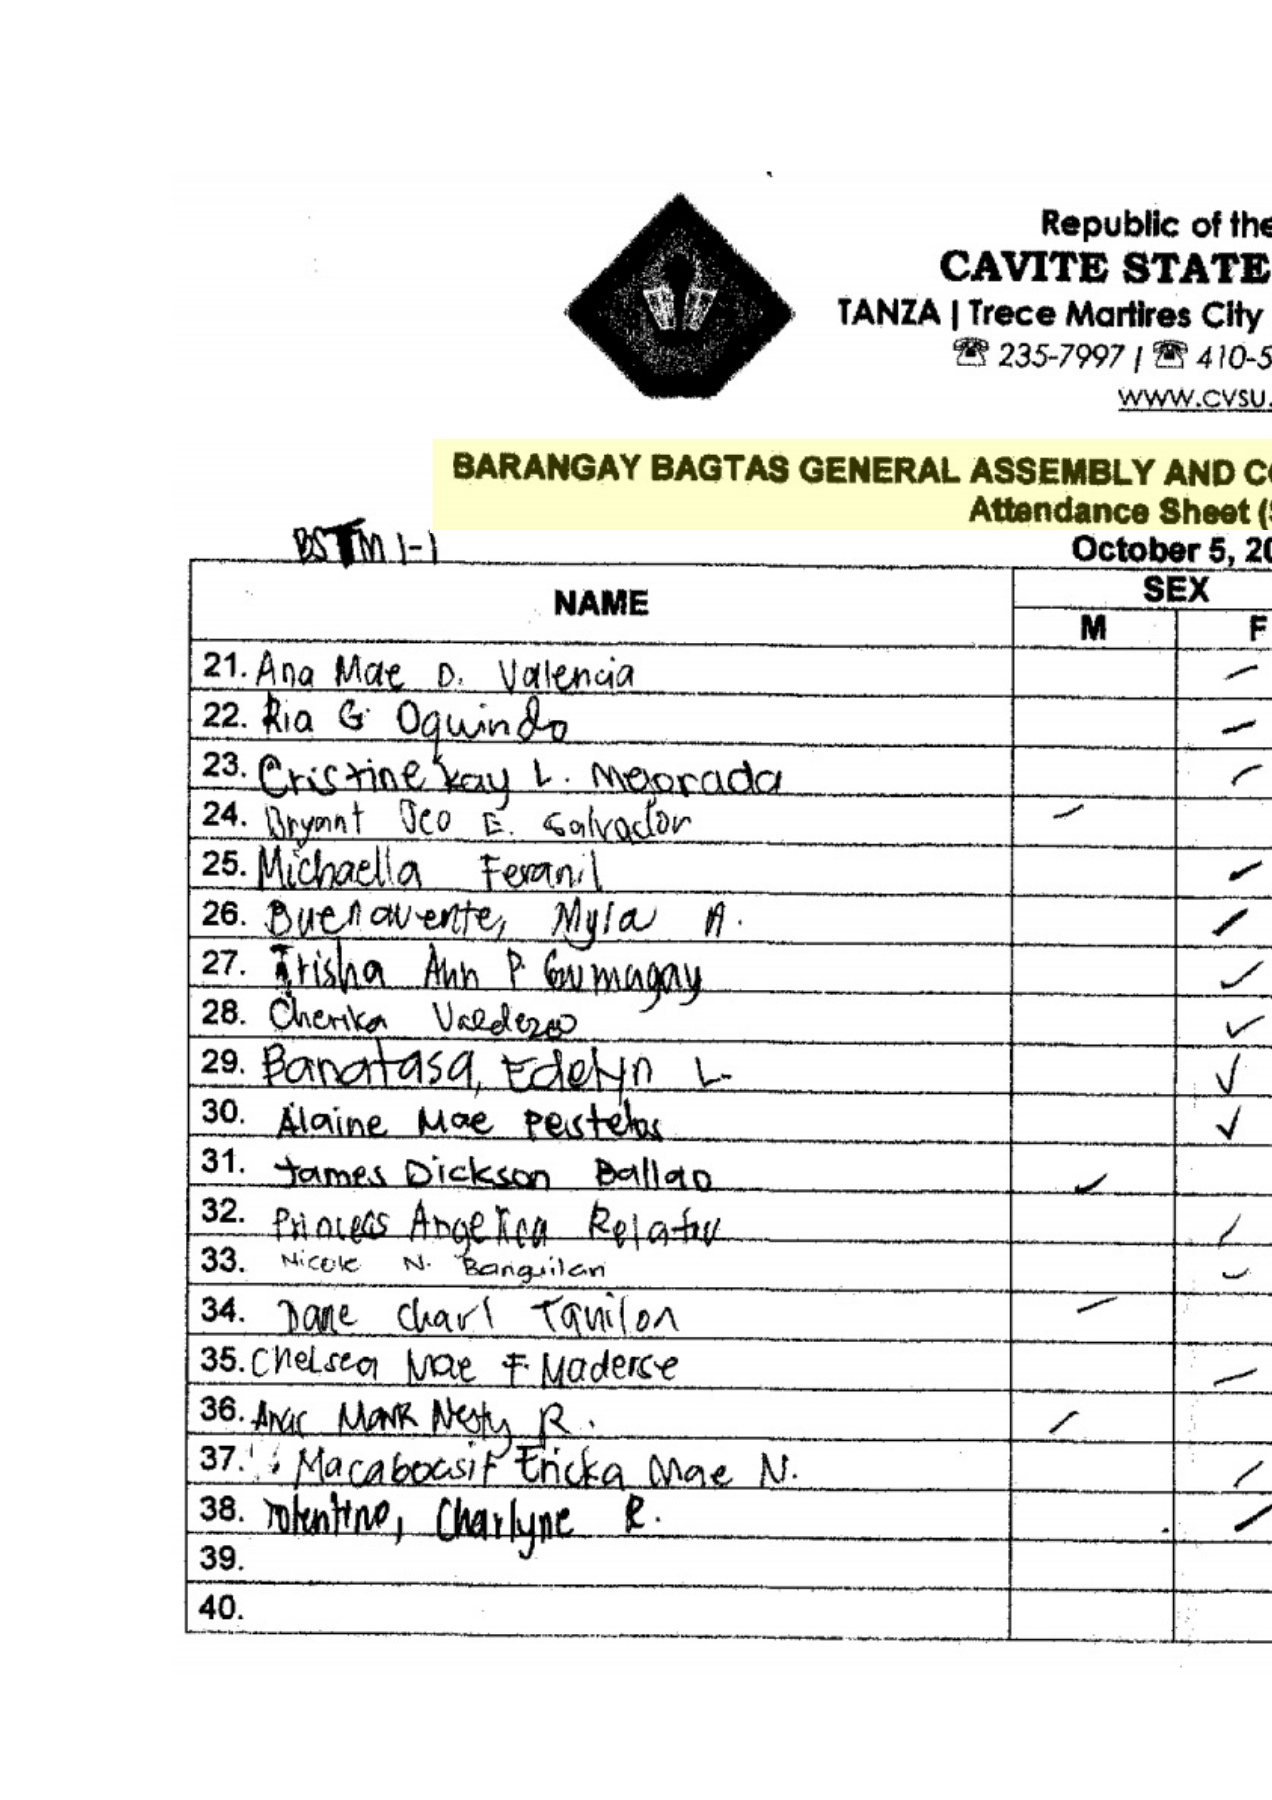 Republic of the
CAVITE STATE
TANZA | Trece Martires City
☎ 235-7997 | ☎ 410-5
www.cvsu.
BARANGAY BAGTAS GENERAL ASSEMBLY AND CO
Attendance Sheet (S
BSTM 1-1
October 5, 20
NAME SEX
M F
21. Ana Mae D. Valencia
22. Ria G Oquindo
23. Cristine Kay L. Mejorada
24. Bryant Jco E. Salvador
25. Michaella Feranil
26. Buenavente, Myla A.
27. Trisha Ann P. Gumagay
28. Cherika Valdezco
29. Banatasa, Edelyn L.
30. Alaine Mae Peistelos
31. James Dickson Ballao
32. Princess Angelica
33. Nicole N. Banguilan
34. Dane Charl Tquilon
35. Chelsea Mae F. Maderse
36. Mark Nesty R.
37. Ericka Mae N.
38. Tolentino, Charlyne R.
39.
40.